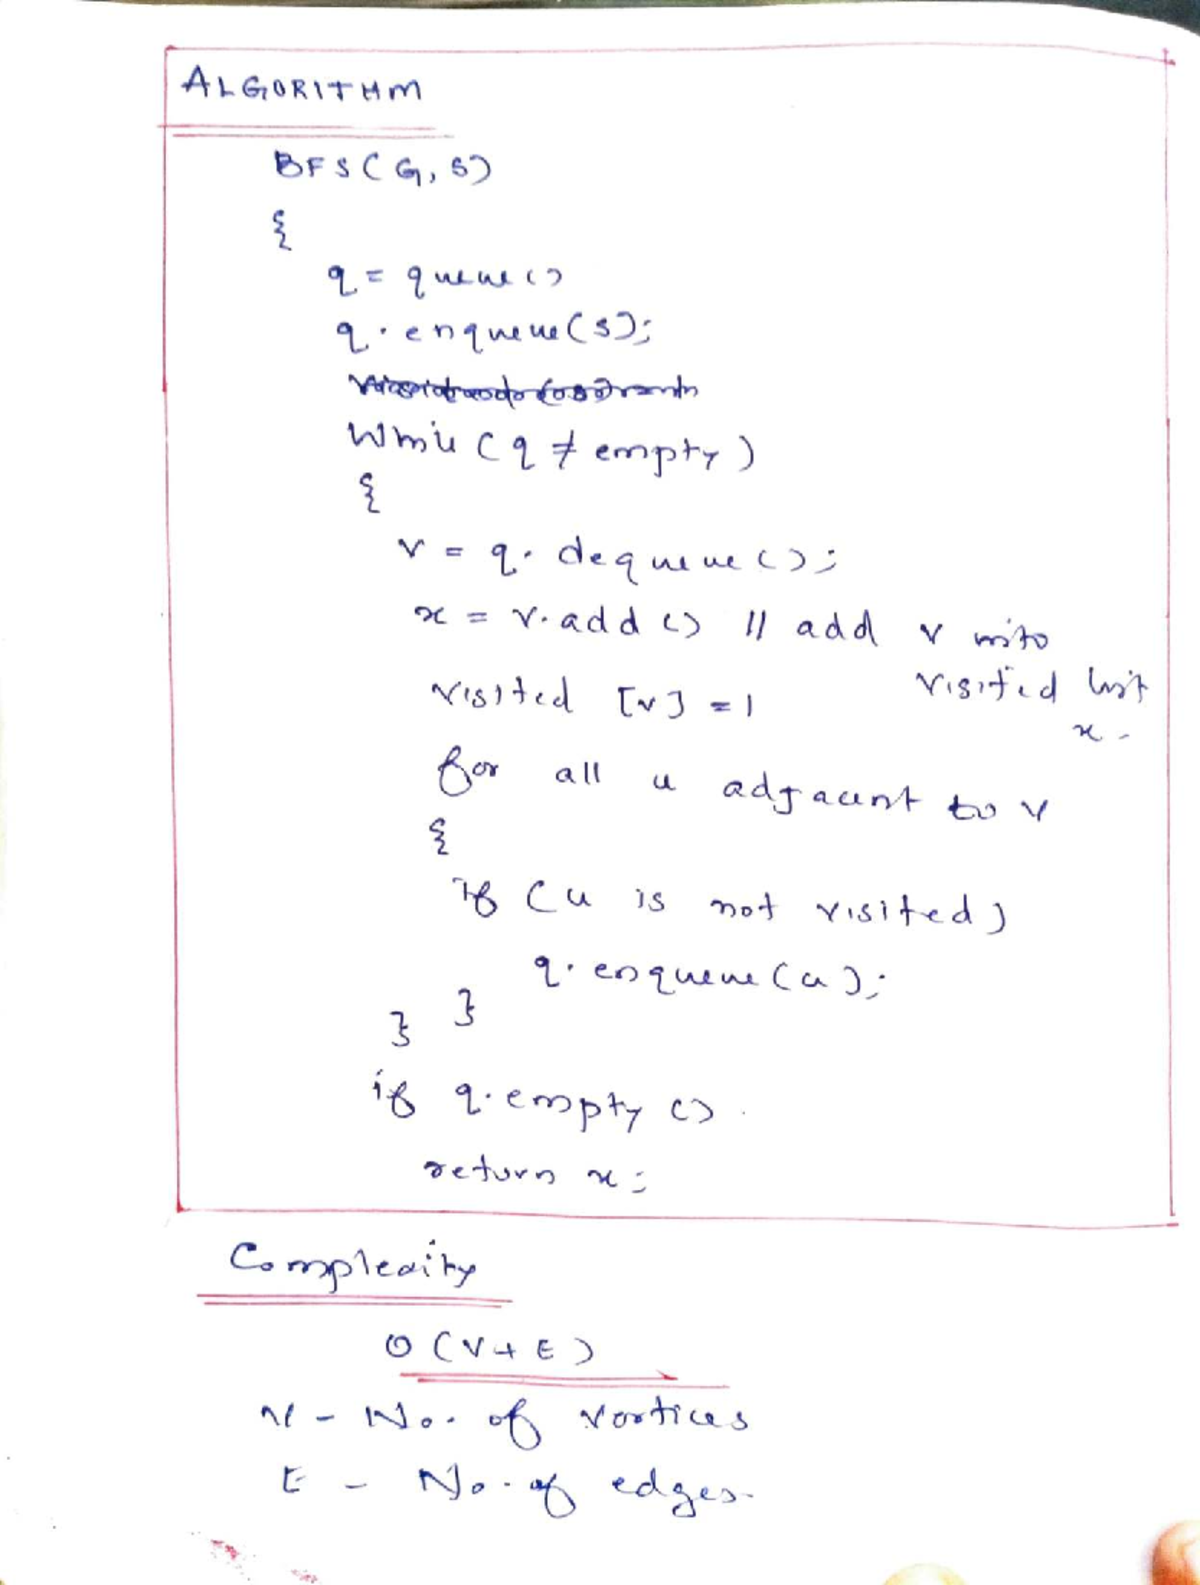 ALGORITHM
BFS(G, S)
{
q = queue()
q.enqueue(s);
While (q ≠ empty)
{
v = q. dequeue();
x = v.add() // add v into
visited [v] = 1 visited list
x.
for all u adjacent to v
{
if (u is not visited)
q. enqueue(u);
}
}
if q.empty().
return x;
Complexity
O(V+E)
V - No. of vertices
E - No. of edges.